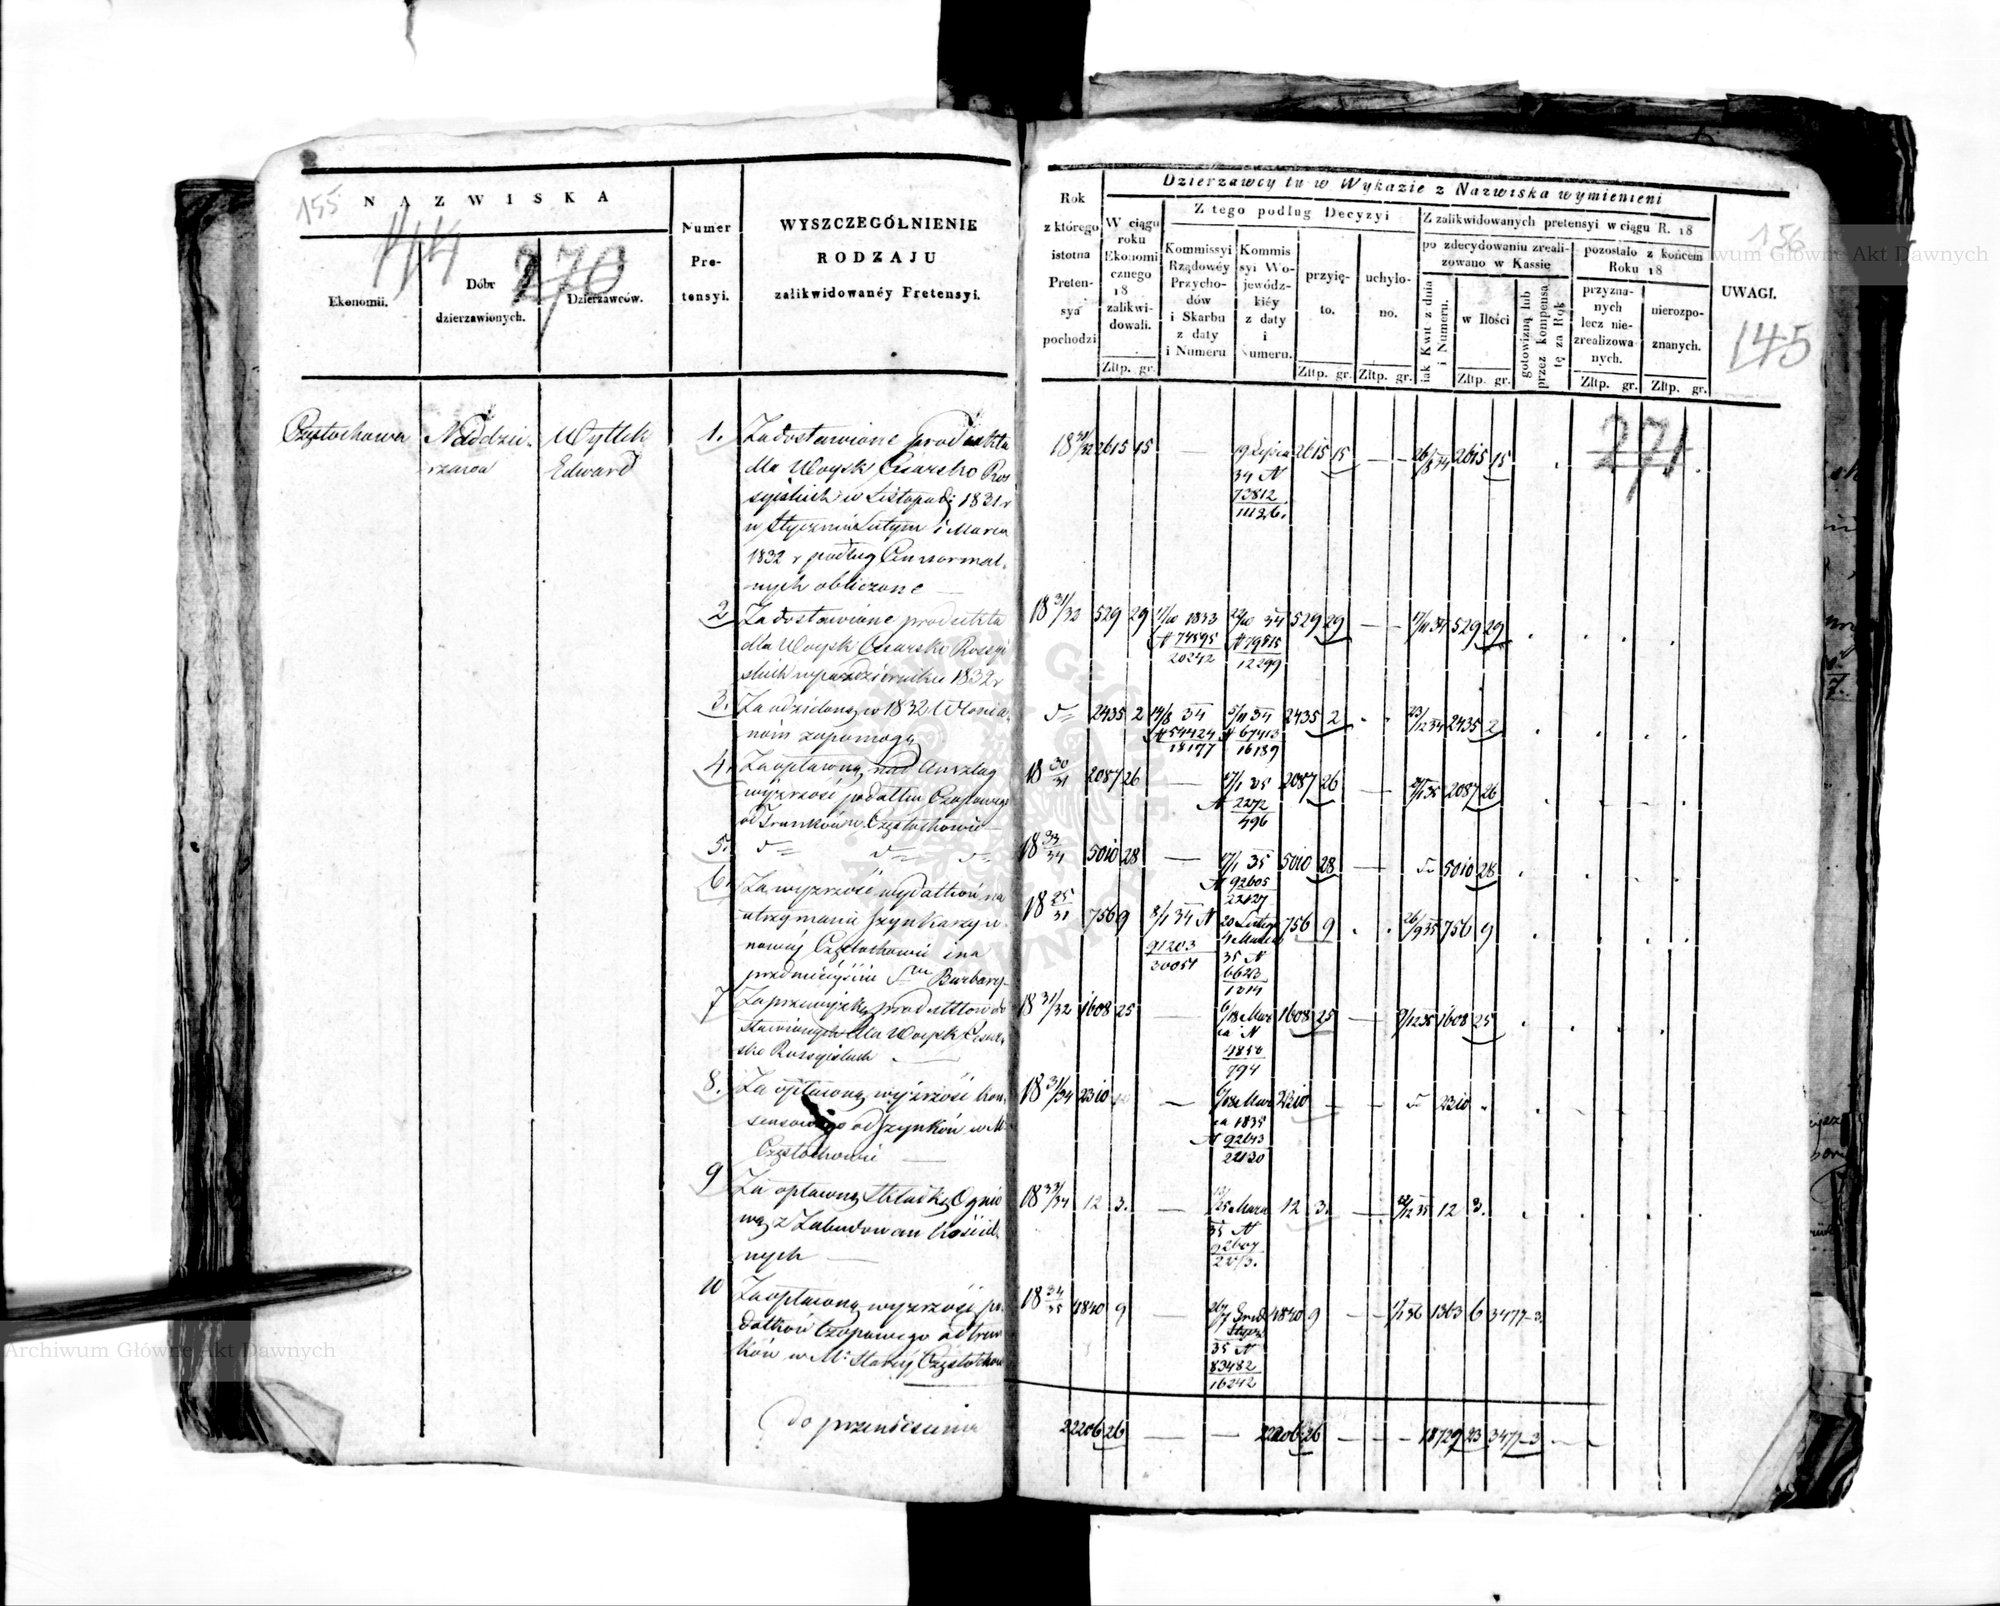 155
NAZWISKA
144
270
Ekonomii.
Dóbr dzierzawionych.
Dzierzawców.
Numer Pre- tensyi.
WYSZCZEGÓLNIENIE
RODZAJU
zalikwidowanéy Pretensyi.
Częstochowa
Naddzie-
rzawa
Wyttek
Edward
1. Za dostawione produkta
dla Woysk Cesarsko Ros
syiskich w Listopadz 1831 r
w Styczniu Lutym i Marcu
1832 r podług Cen normal-
nych obliczone
2 Za dostawione produkta
dla Woysk Cesarsko Rossyi
skich w październiku 1832 r
3. Za udzieloną w 1832 Włoscia-
nóm zapomogę
4. Za opłaconą nad Anszlag
wyższość podatku Czopowego
od Trunków w Częstochowie
5.
6. Za wyższość wydatków na
utrzymanie szynkarzy w
nowéj Częstochowie i na
przedmieściu S Barbary
7 Za przewyżkę produktów do
stawionych dla Woysk Cesar-
sko Rossyiskich
8. Za opłaconą wyższość kon-
sensowego od szynków w M
Częstochowie
9 Za opłaconą składkę Ognio
wą z Zabudowań kościel-
nych
10 Za opłaconą wyższość po-
datków Czopowego od trun-
ków w M. Staréj Częstochow
do przeniesienia
Dzierzawcy tu w Wykazie z Nazwiska wymienieni
156
Rok z którego istotna Preten- sya pochodzi
W ciągu roku Ekonomi cznego 18 zalikwi- dowali.
Z tego podług Decyzyi
Kommissyi Rządowéy Przycho- dów i Skarbu z daty i Numeru
Kommis syi Wo- jewódz- kiéy z daty i Numeru.
przyię- to.
uchylo- no.
Z zalikwidowanych pretensyi w ciągu R. 18
po zdecydowaniu zreali- zowano w Kassie
iak Kwit z dnia i Numeru.
w Ilości
gotowizną lub przez kompensa tę za Rok
pozostało z końcem Roku 18
przyzna- nych lecz nie- zrealizowa- nych.
nierozpo- znanych.
UWAGI.
145
Złtp. gr. Złtp. gr. Złtp. gr. Złtp. gr. Złtp. gr. Złtp. gr.
271
18 31/32 2615 15 — 19 Lipca 34 N 73812 11126. 2615 15 — 2615 15
18 31/32 529 29 1833 N 74595 20242 34 N 79815 12299 529 29 — 529 29
2435 2 14/8 34 N 54424 18177 5/11 34 N 67413 16189 2435 2 23/12 34 2435 2
18 30/31 2087 26 — 17/1 35 N 2272 496 2087 26 — 2087 26
18 33/34 5010 28 — 17/1 35 N 92605 22127 5010 28 — 5010 28
18 25/31 756 9 8/1 34 N 91203 30051 20 Lutego 4 Marca 35 N 6623 1214 756 9 26/9 35 756 9
18 31/32 1608 25 — 6/18 Mar ca N 4854 794 1608 25 — 1608 25
18 31/34 2310 — 6/18 Mar ca 1835 N 92643 22130 2310 — 2310
18 33/34 12 3. — 25 Marca 35 N 12 3. — 12 3.
18 34/35 4840 9 — Grud Stycz 35 N 83482 16242 4840 9 — 1363 6 3477 3.
22206 26 — — 22206 26 — — 18729 23 3477 3
Archiwum Główne Akt Dawnych
Archiwum Główne Akt Dawnych